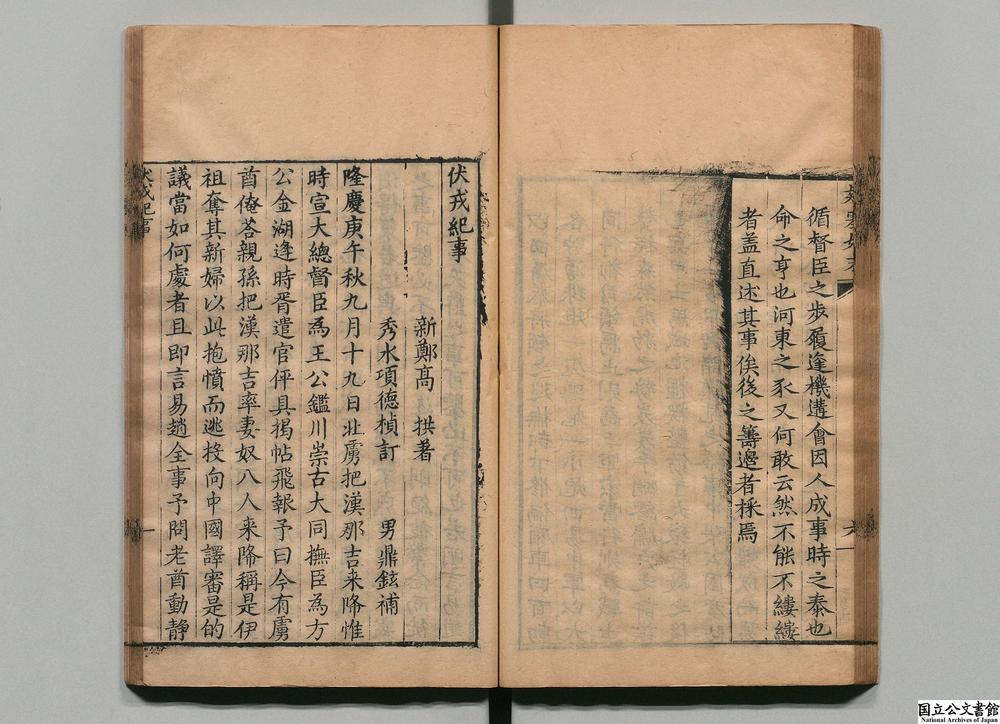 循督臣之歩履逢機遘會因人成事時之泰也
命之亨也河東之豕又何敢云然不能不縷縷
者盖直述其事俟後之籌邊者採焉
六
伏戎紀事
新鄭高 拱著
秀水項德楨訂 男鼎鉉補
隆慶庚午秋九月十九日北虜把漢那吉来降惟
時宣大總督臣為王公鑑川崇古大同撫臣為方
公金湖逢時胥遣官伻具揭帖飛報予曰今有虜
酋俺荅親孫把漢那吉率妻奴八人来降稱是伊
祖奪其新婦以此抱憤而逃投向中國譯審是的
議當如何處者且即言易趙全事予問老酋動静
伏戎紀事
一
国立公文書館
National Archives of Japan